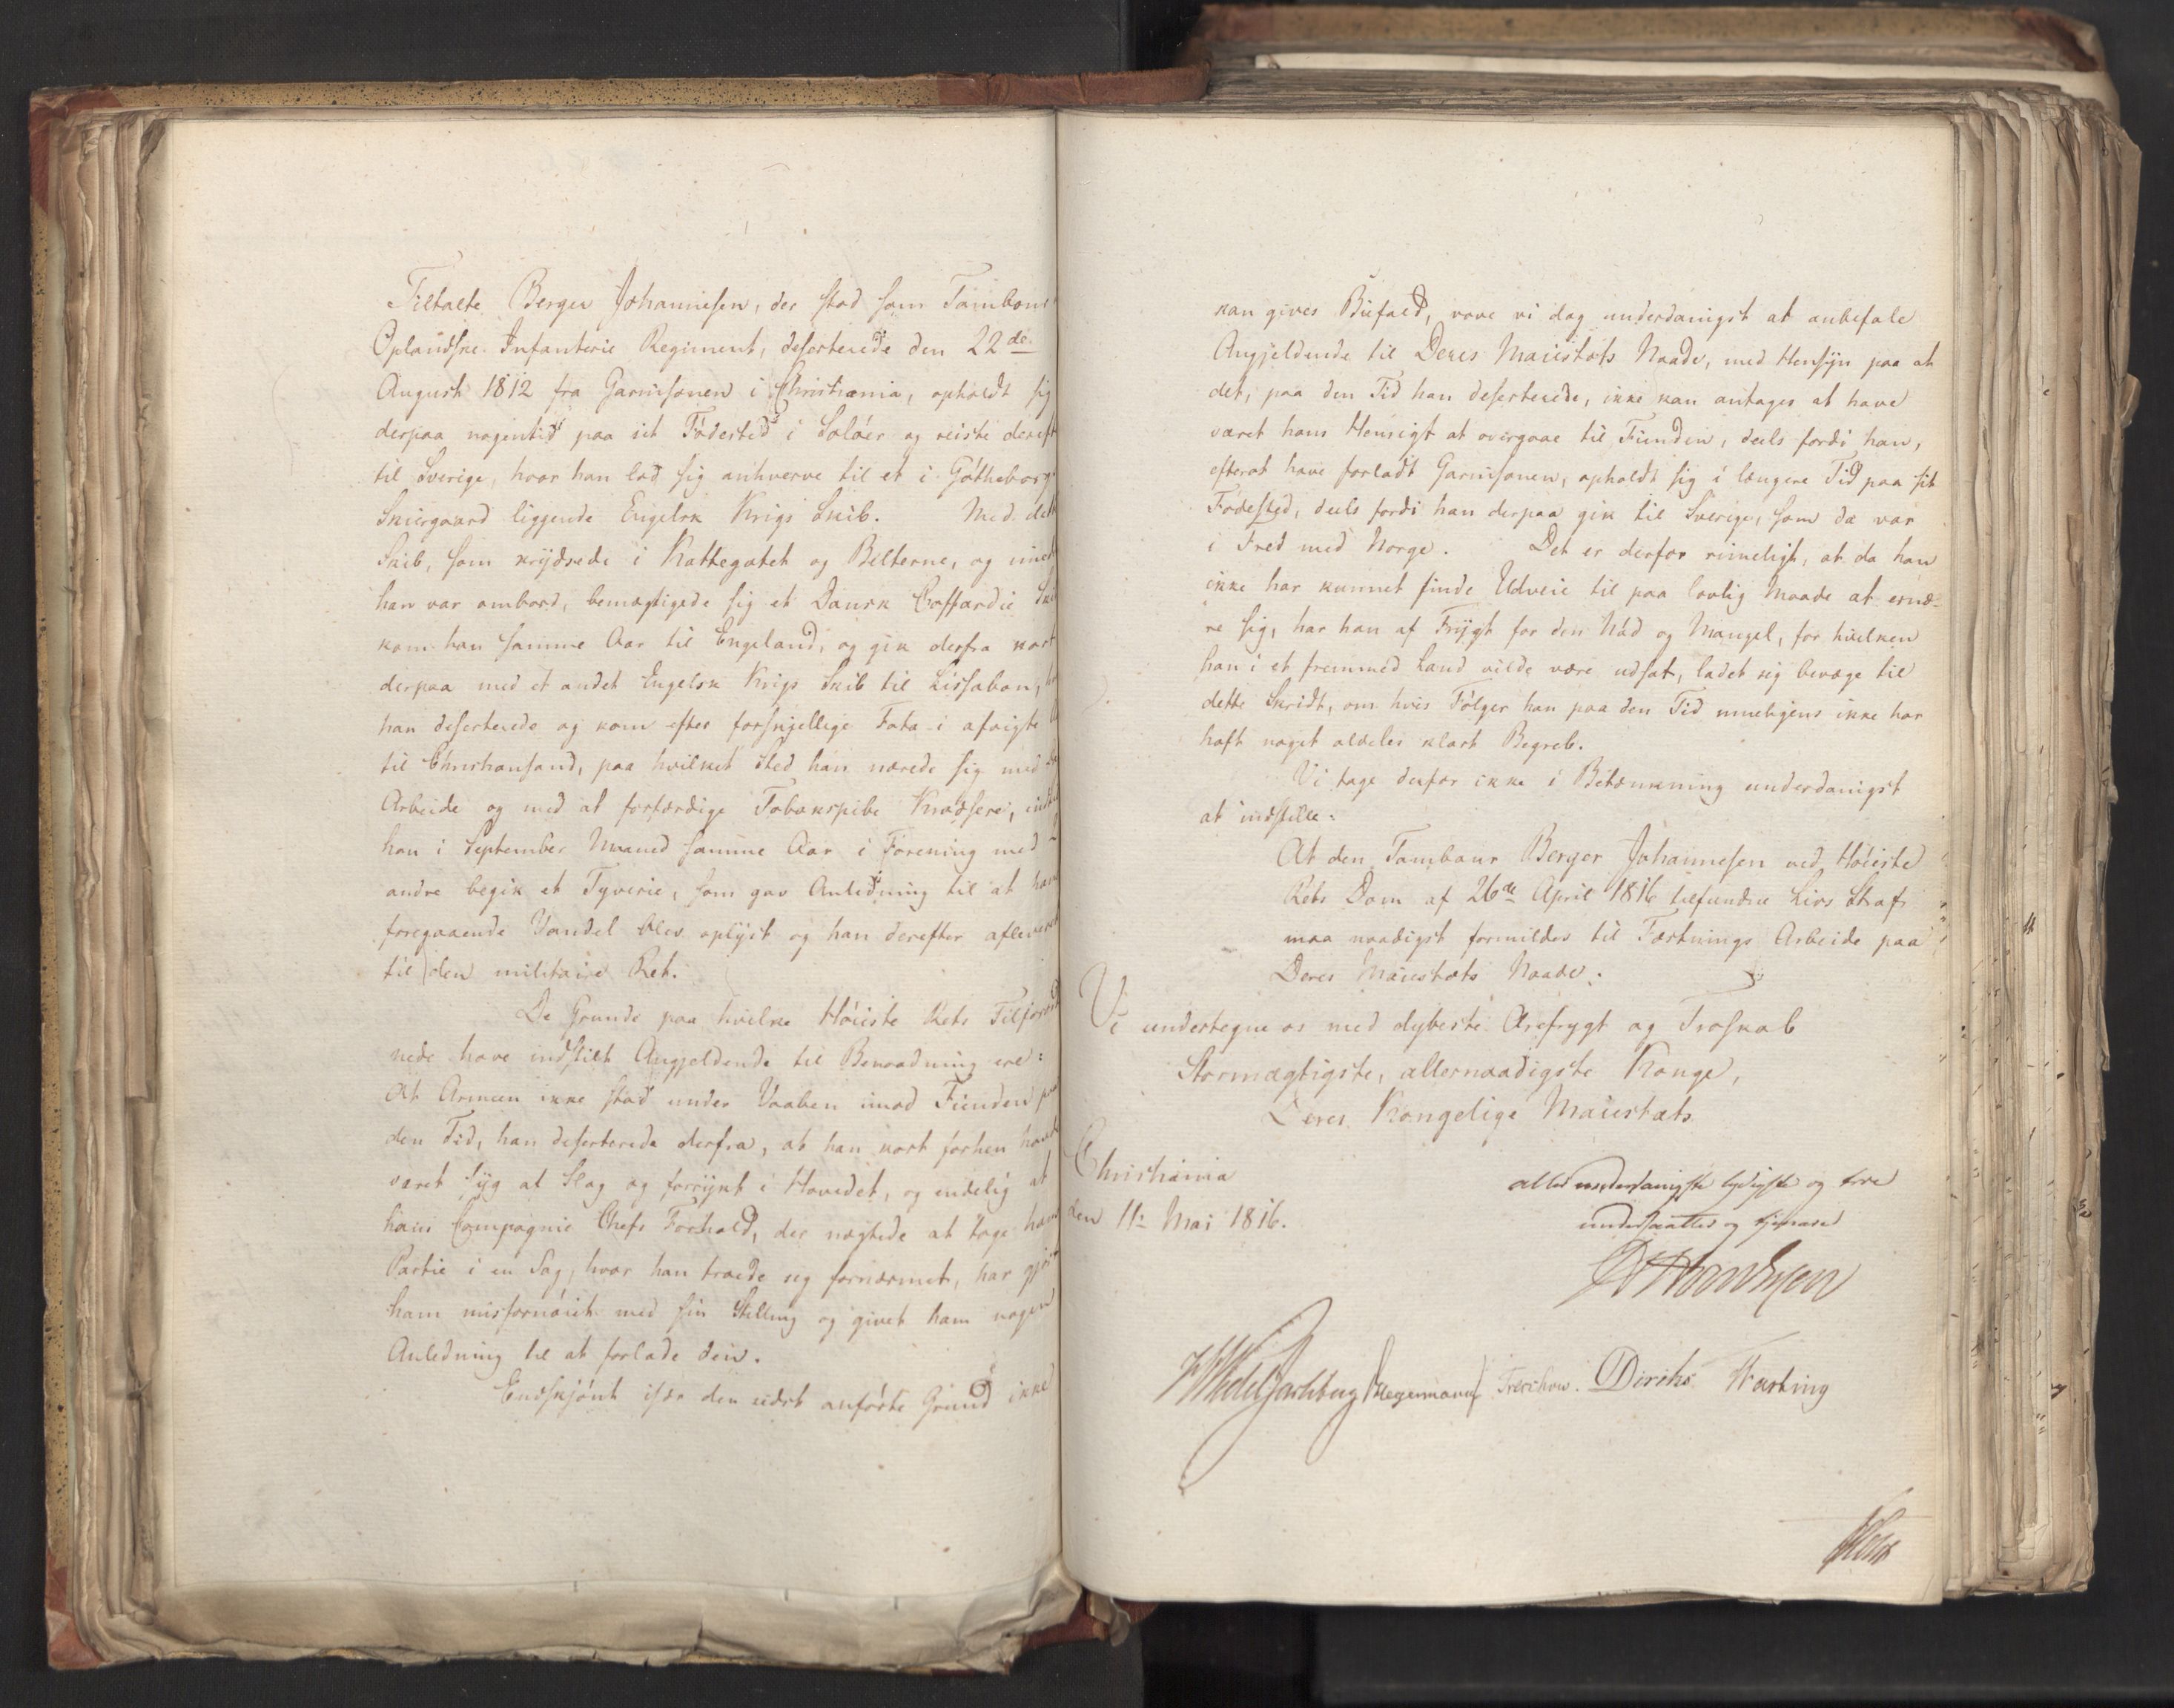 Tiltalte Berger Johannesen, der stod som Tambour
Oplandske Infanterie Regiment, deserterede den 22de
August 1812 fra Garnisonen i Christiania, opholdt sig
derpaa nogentid paa sit Fødested i Soløer og reiste dereft
til Sverige, hvor han lod sig anhverve til et i Götheborgs
Skiergaard liggende Engelsk Krigs Skib. Med dette
Skib, som krydsede i Kattegatet og Belterne, og
han var ombord, bemægtigede sig et Dansk Coffardie
kom han samme Aar til Engeland, og gik derfra kort
derpaa med et andet Engelsk Krigs Skib til Lissabon,
han deserterede og kom efter forskjellige Fata i afvigte
til Christiansand, paa hvilket Sted han nærede sig med
Arbeide og med at forfærdige Tobakspibe Kradsere,
han i September Maaned samme Aar i Forening med
andre begik et Tyverie, som gav Anledning til at hans
foregaaende Vandel blev oplyst og han derefter afleveret
til den militaire Ret.
De Grunde paa hvilke Høieste Rets Tilforord
nede have indstilt Angjeldende til Benaadning ere:
At Armeen ikke stod under Vaaben imod Fienden paa
den Tid, han deserterede derfra, at han kort forhen havde
været syg at Slag og forrykt i Hovedet, og endelig at
hans Compagnie Chefs Forhold, der nægtede at tage hans
Partie i en Sag, hvor han troede sig fornærmet, har gjort
ham misfornøiet med sin Stilling og givet ham nogen
Anledning til at forlade den.
Endskjønt især den sidst anførte Grund ikke
kan gives Biefald, vove vi dog underdanigst at anbefale
Angjeldende til Deres Maiestæts Naade, med Hensyn paa at
det, paa den Tid han deserterede, ikke kan antages at have
været hans Hensigt at overgaae til Fienden, deels fordi han,
efterat have forladt Garnisonen, opholdt sig i længere Tid paa sit
Fødested, deels fordi han derpaa gik til Sverige, som da var
i Fred med Norge. Det er derfor rimeligt, at da han
ikke har kunnet finde Udveie til paa lovlig Maade at ernæ-
re sig, har han af Frygt for den Nød og Mangel, for hvilken
han i et fremmed Land vilde være udsat, ladet sig bevæge til
dette Skridt, om hvis Følger han paa den Tid rimeligens ikke har
haft noget aldeles klart Begreb.
Vi tage derfor ikke i Betænkning underdanigst
at indstille:
At den Tambour Berger Johannesen ved Høieste
Rets Dom af 26de April 1816 tilfundne Livs Straf
maa naadigst formildes til Fæstnings Arbeide paa
Deres Maiestæts Naade.
Vi undertegne os med dybeste Ærefrygt og Troskab
Stormægtigste, allernaadigste Konge,
Deres Kongelige Maiestæts
Christiania
den 11te Mai 1816.
allerunderdanigste lydigste og troe
undersaatter og tjenere

Wedel Jarlsberg Hegermann Treschow. Diriks Fasting